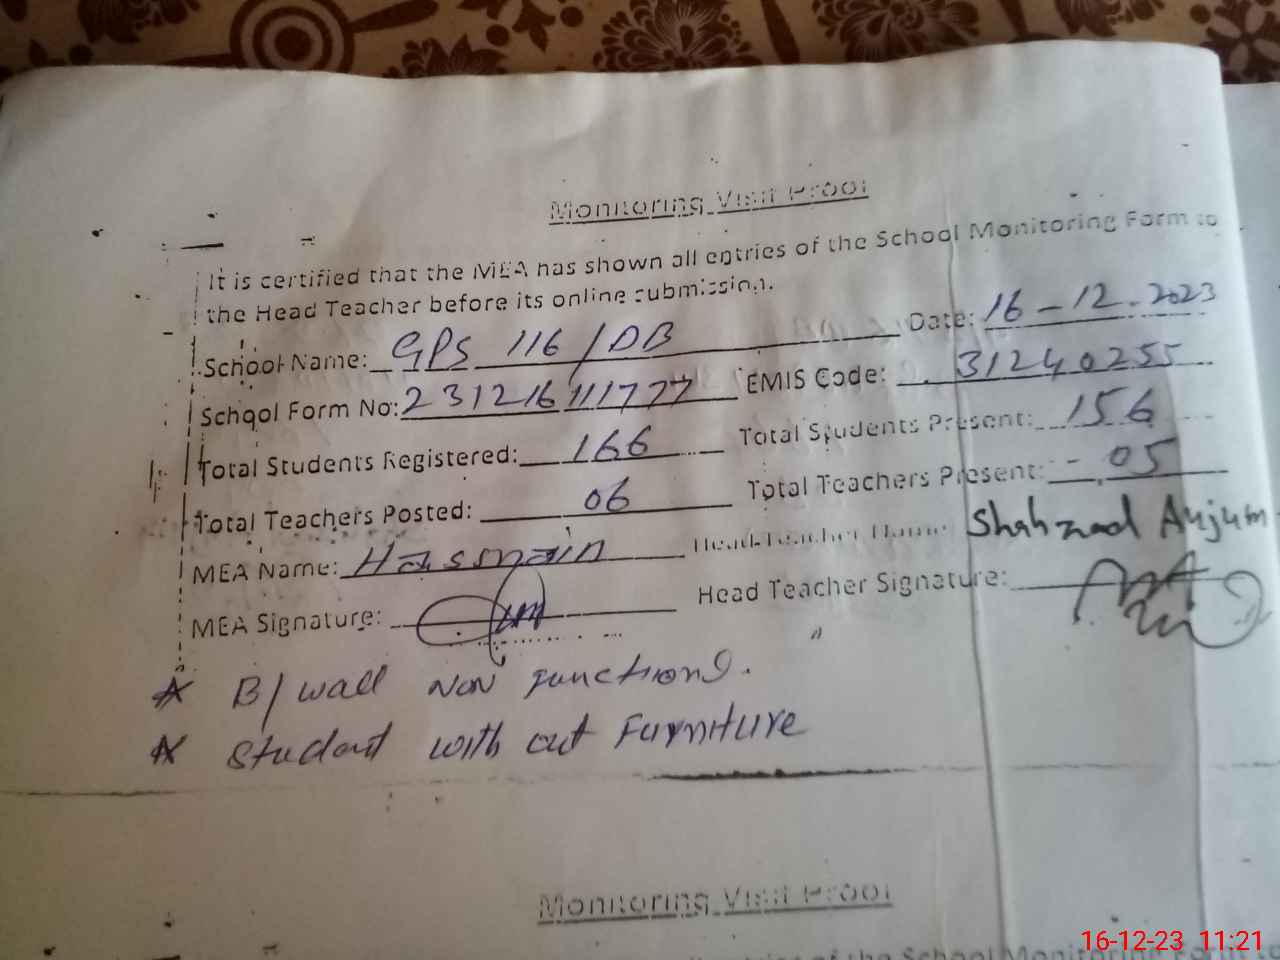 Monitoring Visit Proof
It is certified that the MEA has shown all entries of the School Monitoring Form to
the Head Teacher before its online submission.
School Name: GPS 116/DB Date: 16-12-2023
School Form No: 231216111777 EMIS Code: 31240255
Total Students Registered: 166 Total Students Present: 156
Total Teachers Posted: 06 Total Teachers Present: 05
MEA Name: Hasnain Head Teacher Name: Shahzad Anjum
MEA Signature: Head Teacher Signature:
* B/wall Non functional.
* Student with out Furniture
Monitoring Visit Proof
entries of the School Monitoring Form to
16-12-23 11:21